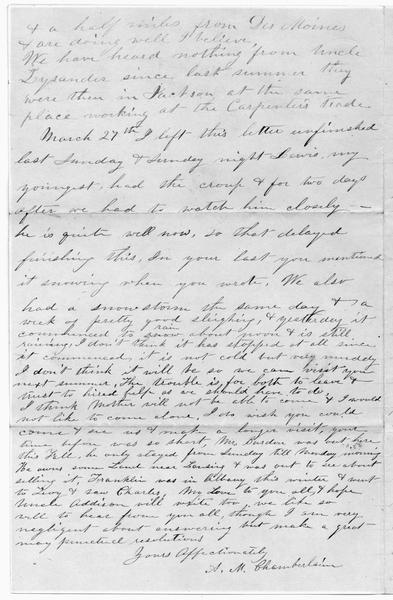 & a half miles from Des Moines
& are doing well I believe.
We have heard nothing from Uncle
Lysander since last summer they
were then in Jackson at the same
place working at the Carpenters trade
March 27th I left this letter unfinished
last Sunday & Sunday night Lewis, my
youngest, had the croup & for two days
after we had to watch him closely —
he is quite well now, so that delayed
finishing this, In your last you mentioned
it snowing when you wrote, We also
had a snowstorm the same day & a
week of pretty good sleighing, & yesterday it
commenced to rain about noon & is still
raining, I don't think it has stopped at all since
it commenced, it is not cold but very muddy
I don't think it will be so we can visit you
next summer, The trouble is, for both to leave &
trust to hired help as we should have to do
I think Mother will not be able to come & I would
not like to come alone, I do wish you could
come & see us & make a longer visit, your
time before was so short, Mr was out here
this Fall, he only stayed from Sunday till Monday morning
He owns some Land near Lansing & was out to see about
selling it, Franklin was in Albany this winter & went
to Troy & saw Charlie, My Love to you all, & hope
Uncle Addison will write too, we like so
well to hear from you all, though I am very
negligent about answering but make a great
many punctual resolutions
Yours Affectionately
A. M. Chamberlain